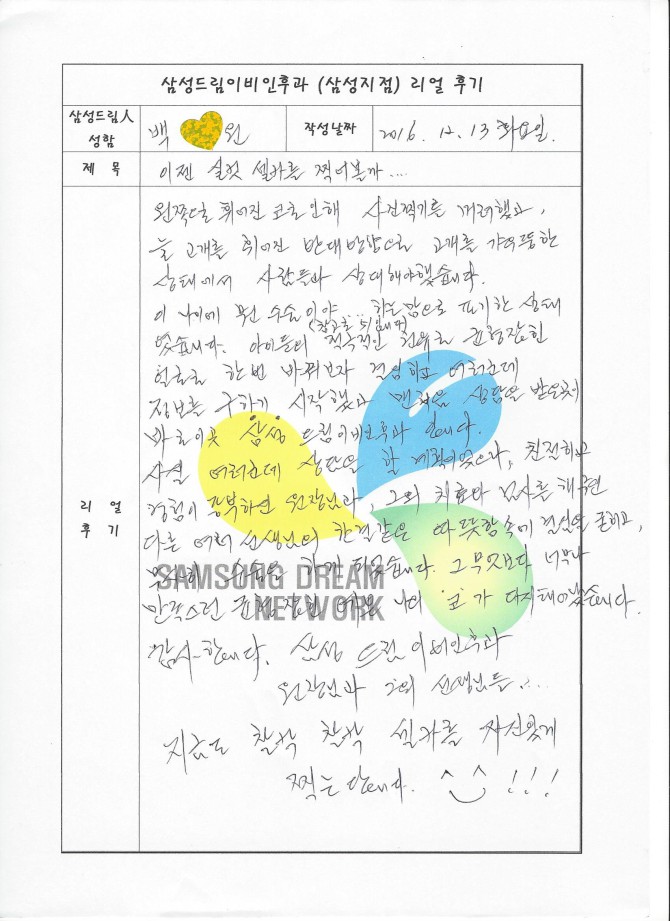 삼성드림이비인후과 (삼성지점) 리얼 후기
삼성드림人 성함 백 원 작성날짜 2016. 12. 13 화요일.
제 목 이젠 실컷 셀카를 찍어볼까....
리 얼 후 기
왼쪽으로 휘어진 코로 인해 사진찍기를 꺼려했고,
늘 고개를 휘어진 반대방향으로 고개를 갸우뚱한
상태에서 사람들과 상대해야했습니다.
이 나이에 무슨 수술이야... 하는 맘으로 포기한 상태
(참고로 51입니다)
였습니다. 아이들의 적극적인 권유로 균형잡힌
얼굴로 한번 바꿔보자 결심하고 여러군데
정보를 구하기 시작했고 맨처음 상담을 받은곳이
바로 이곳 삼성드림이비인후과 입니다.
사실 여러군데 상담을 할 계획이었으나, 친절하고
경험이 풍부하신 원장님과, 그외 치료와 검사를 해주신
다른 여러 선생님의 한결같은 따뜻함속에 결심을 굳히고,
무사히 수술을 하게 되었습니다. 그 무엇보다 너무나
만족스런 균형잡힌 예쁜 나의 '코'가 다시태어났습니다.
SAMSUNG DREAM
NETWORK
감사합니다. 삼성드림이비인후과
원장님과 그외 선생님들....
지금도 찰칵 찰칵 셀카를 자신있게
찍는답니다. ^^ !!!